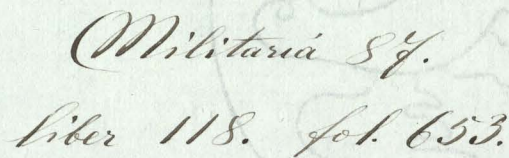 Militariá 87.
liber 118. fol. 653.